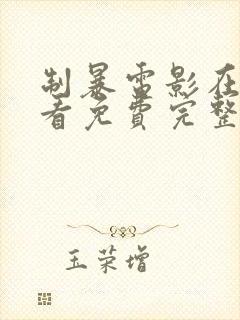 制暴電影在
看免費完整
玉荣增